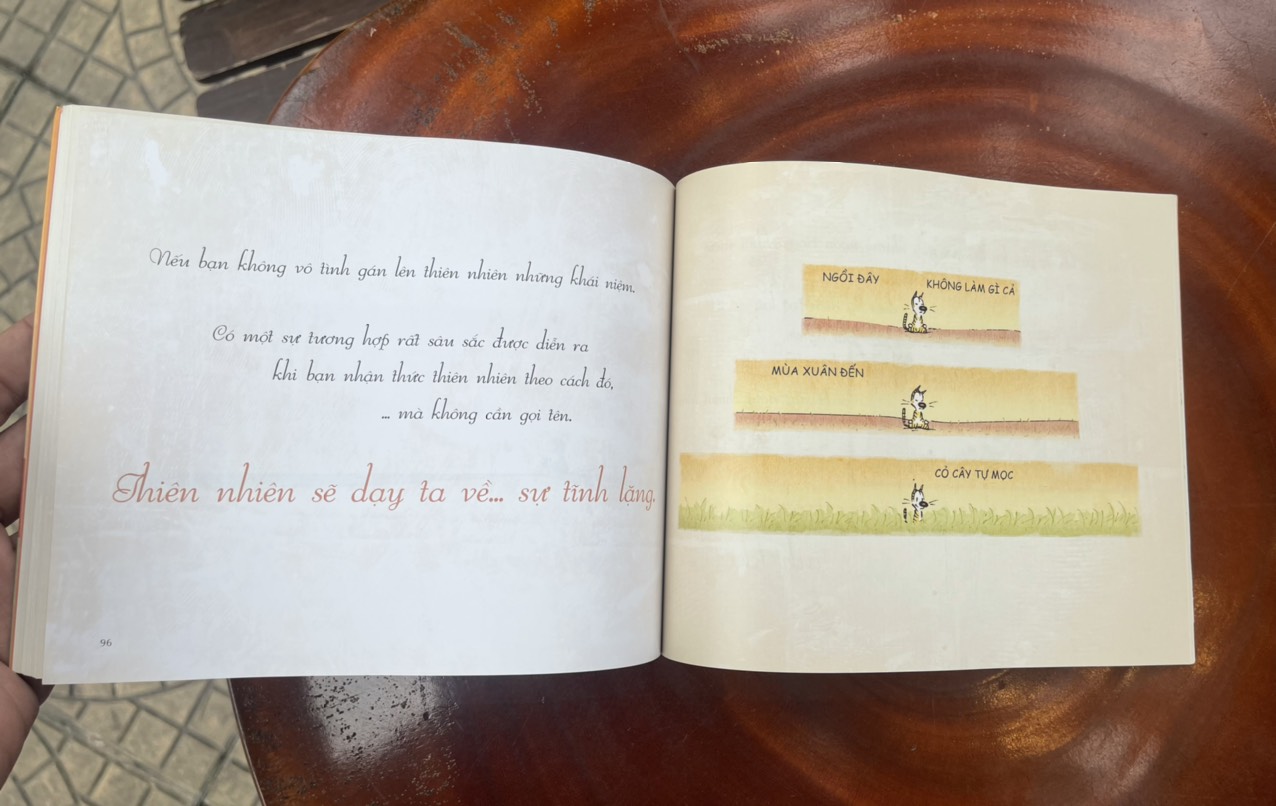 Nếu bạn không vô tình gán lên thiên nhiên những khái niệm.
Có một sự tương hợp rất sâu sắc được diễn ra
khi bạn nhận thức thiên nhiên theo cách đó,
... mà không cần gọi tên.
Thiên nhiên sẽ dạy ta về... sự tĩnh lặng.
96
NGỒI ĐÂY
KHÔNG LÀM GÌ CẢ
MÙA XUÂN ĐẾN
CỎ CÂY TỰ MỌC